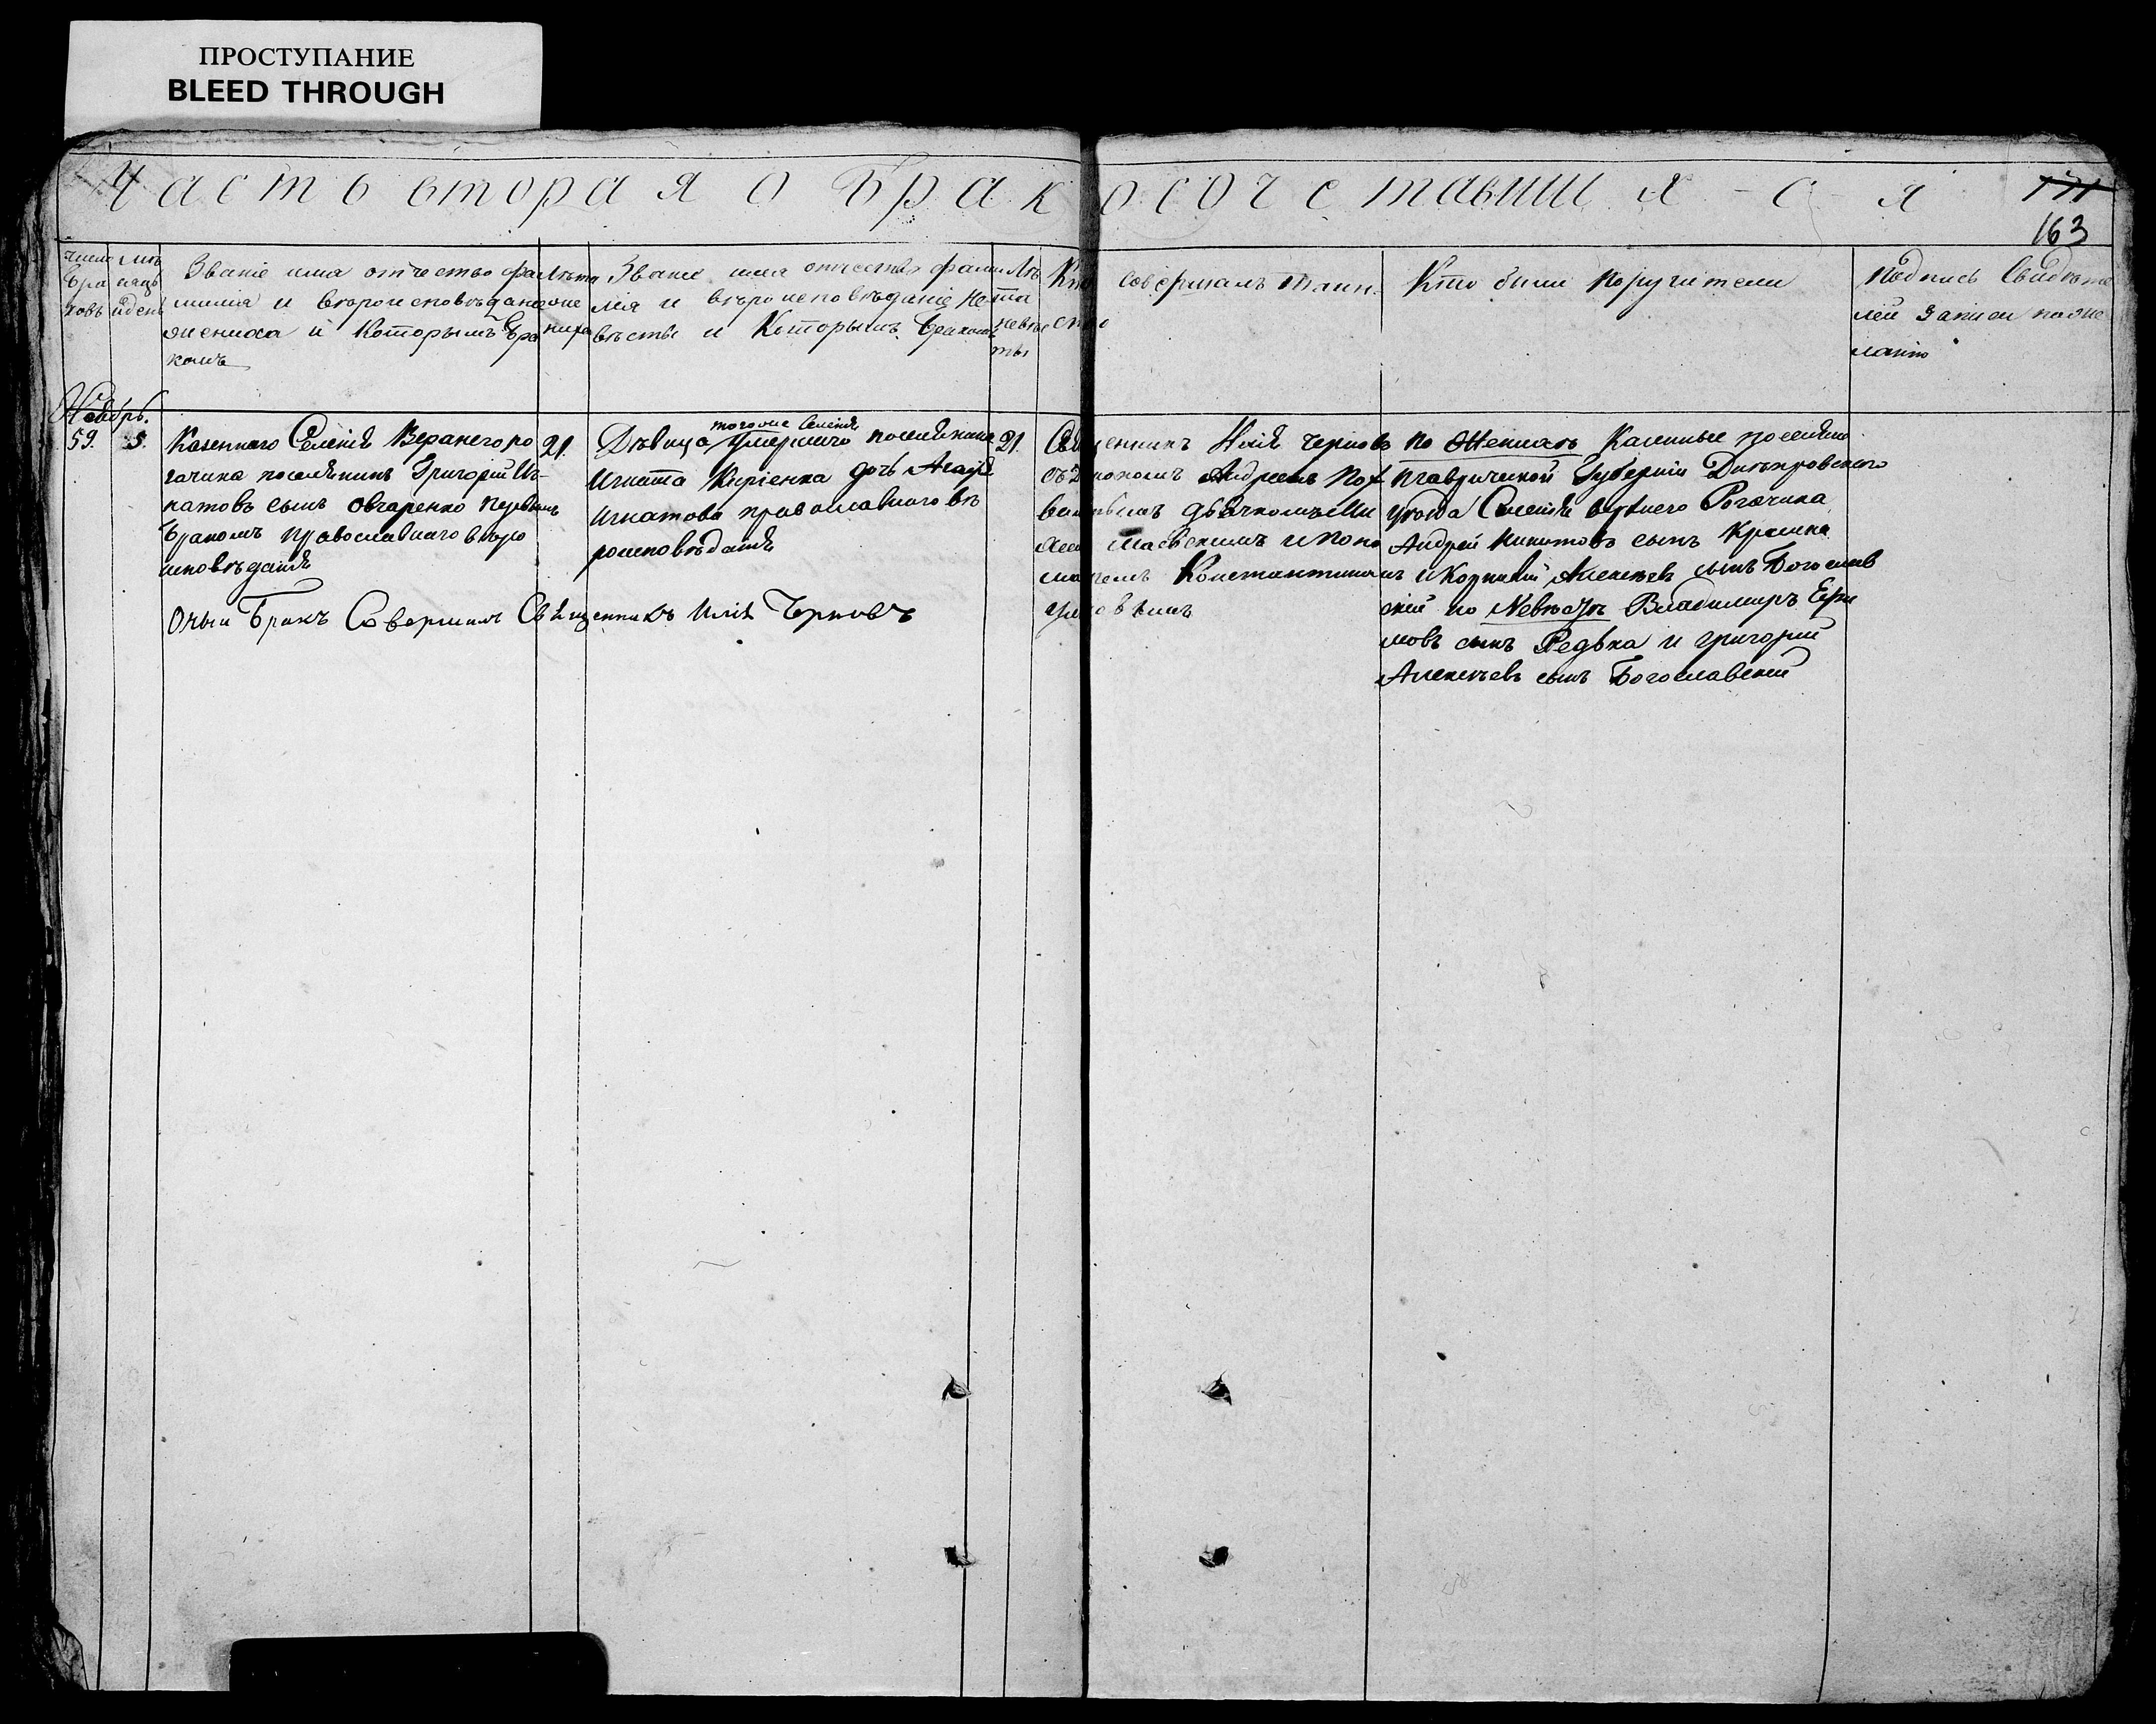 ПРОСТУПАНИЕ
BLEED THROUGH
Часть вторая о бракосочетавшихся
163
Число бра ковъ
Мѣсяцъ и день
Званіе имя отчество фа
милія и вѣроисповѣданіе
жениха и Которымъ бра
комъ
Лѣта жениха
Званіе имя отчество фами
лія и вѣроисповѣданіе не
вѣсты и Которымъ бракомъ
Лѣта невѣсты
Кто совершалъ таин
ство
Кто были поручители
Подпись Свидѣте
лей записи по же
ланію
Ноябрь.
59. 5.
Казеннаго Селенія Верхнего ро
гачика поселянинъ Григорій Иг
натовъ сынъ Овчаренко первымъ
бракомъ православнаго вѣро
исповѣданія
21.
тогоже селенія
Дѣвица умершаго поселянина
Игната Киріенка дочь Агафія
Игнатова православнаго вѣ
роисповѣданія
21.
Священникъ Илія Черновъ
съ Діакономъ Андреемъ
дьячкомъ Ми
и поно
маремъ Константиномъ
По Женихѣ Казенные поселяне
Таврической Губерніи Днѣпровскаго
уѣзда Селенія верхнего Рогачика
Андрей Никитовъ сынъ
и Корнилій Алексѣевъ сынъ Богослав
скій по Невѣстѣ Владимиръ Ефи
мовъ сынъ Редька и Григорій
Алексѣевъ сынъ Богославскій
Оный Бракъ Совершилъ Священникъ Илія Черновъ